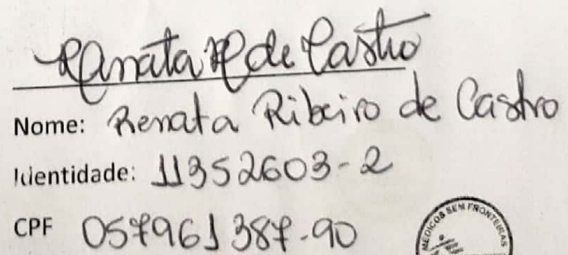 Renata R de Castro
Nome: Renata Ribeiro de Castro
Identidade: 11352603-2
CPF 057961387-90
MEDICOS SEM FRONTEIRAS